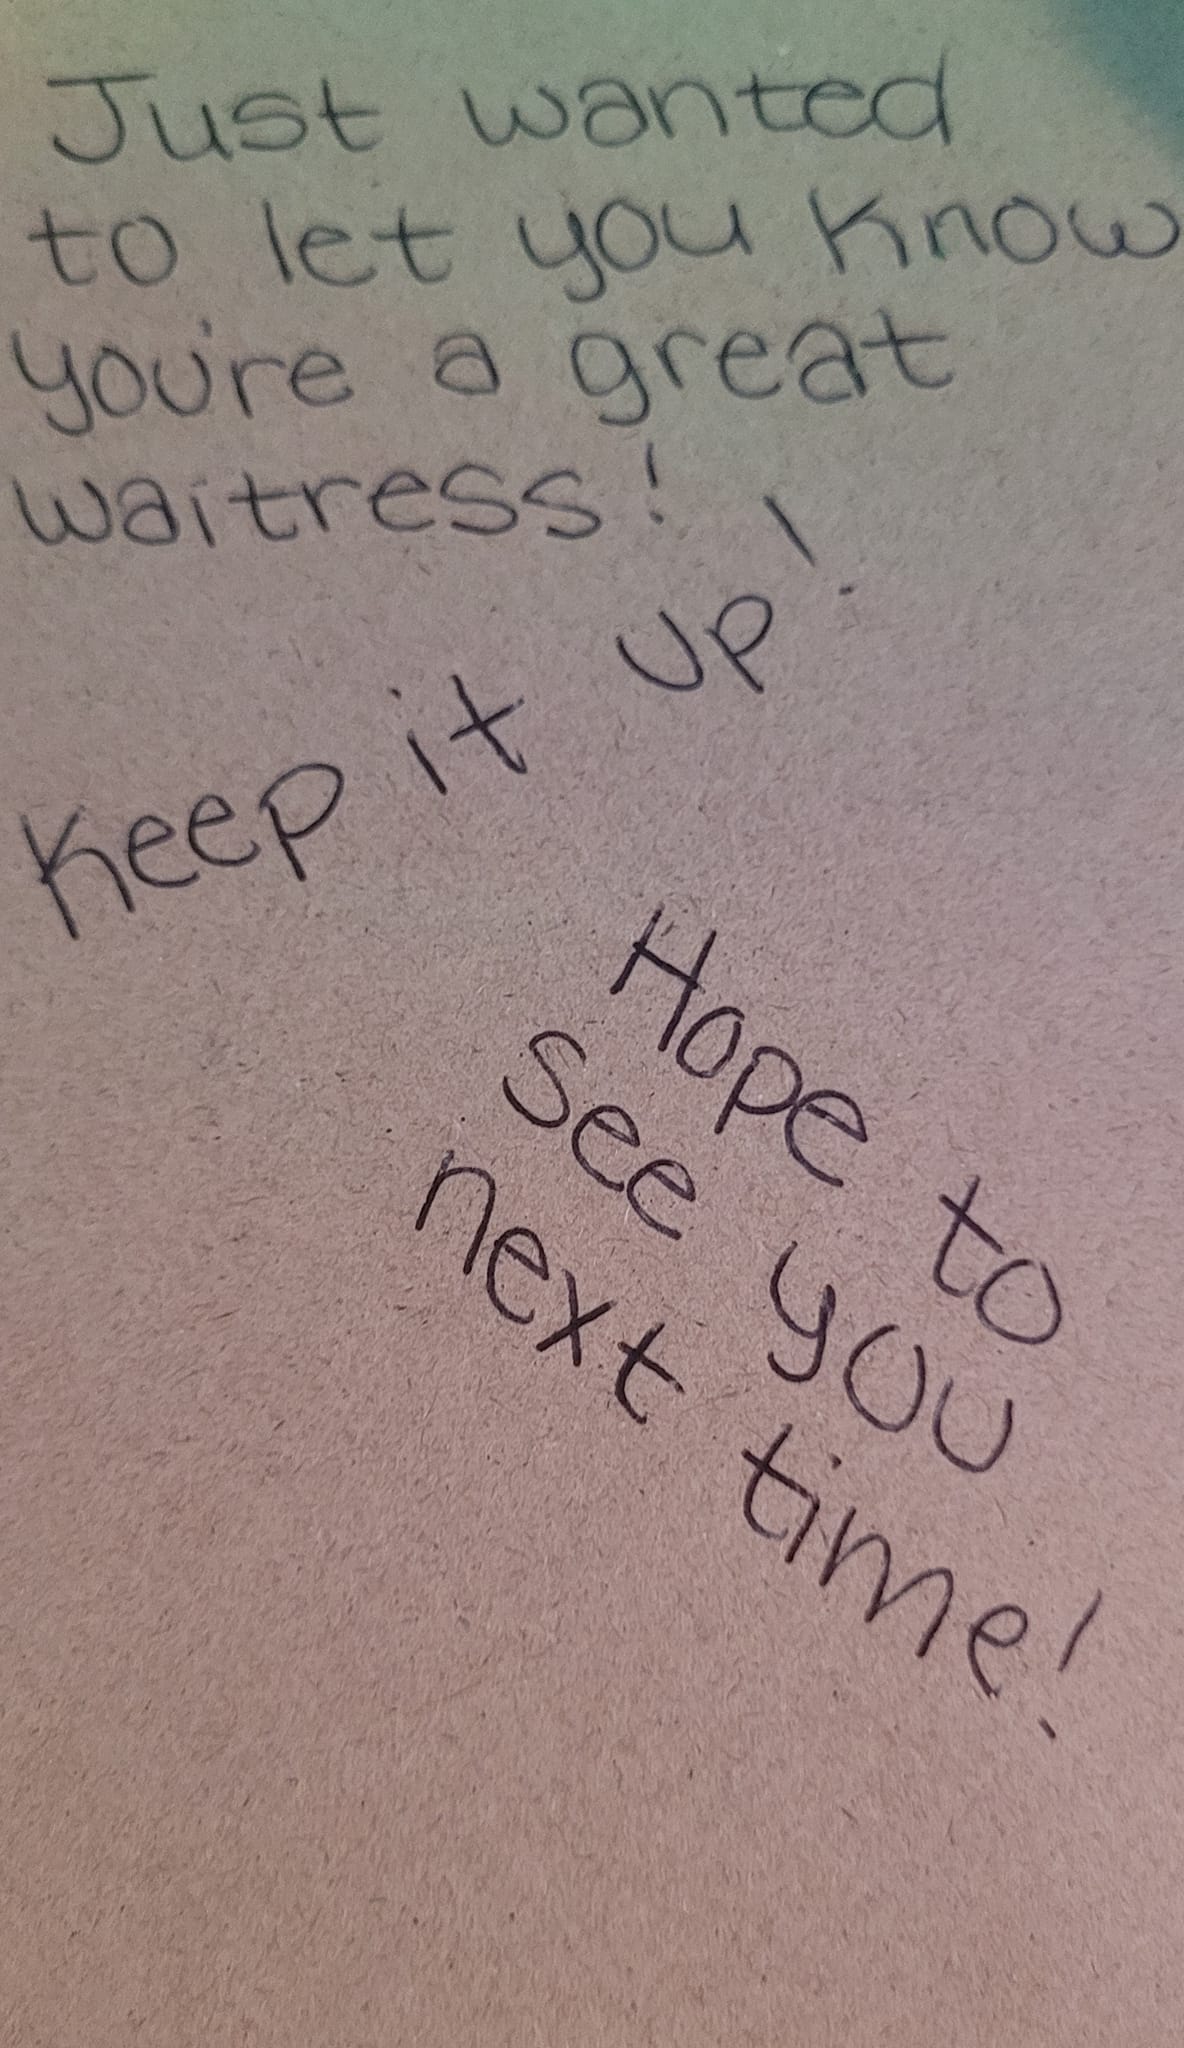 Just wanted
to let you know
you're a great
waitress!
Keep it up!
Hope to
see you
next time!